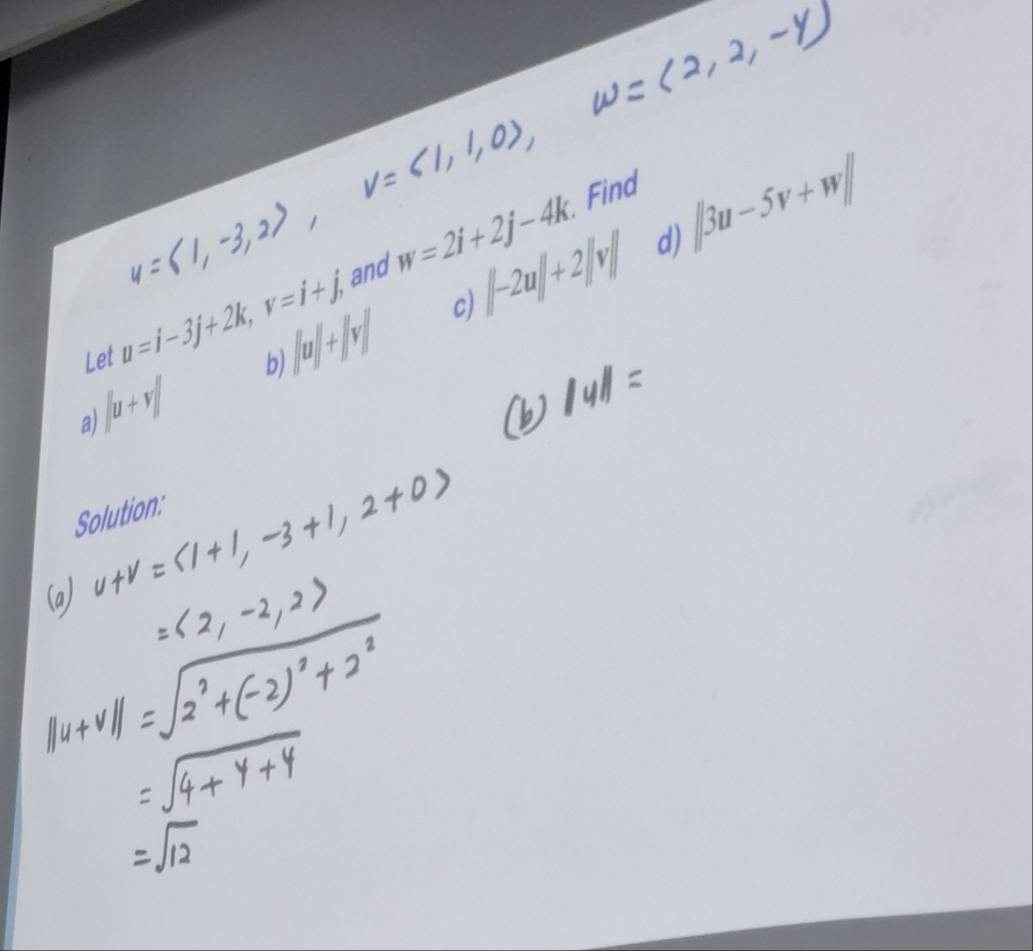 u = ⟨1, -3, 2⟩ , v = ⟨1, 1, 0⟩, w = ⟨2, 2, -4⟩
Let u = i − 3j + 2k, v = i + j, and w = 2i + 2j − 4k. Find
a) ‖u + v‖ b) ‖u‖ + ‖v‖ c) ‖−2u‖ + 2‖v‖ d) ‖3u − 5v + w‖
Solution:
(a) u+v = ⟨1+1, -3+1, 2+0⟩
= ⟨2, -2, 2⟩
‖u+v‖ = √(2²+(-2)²+2²)
= √(4+4+4)
= √12
(b) ‖u‖ =